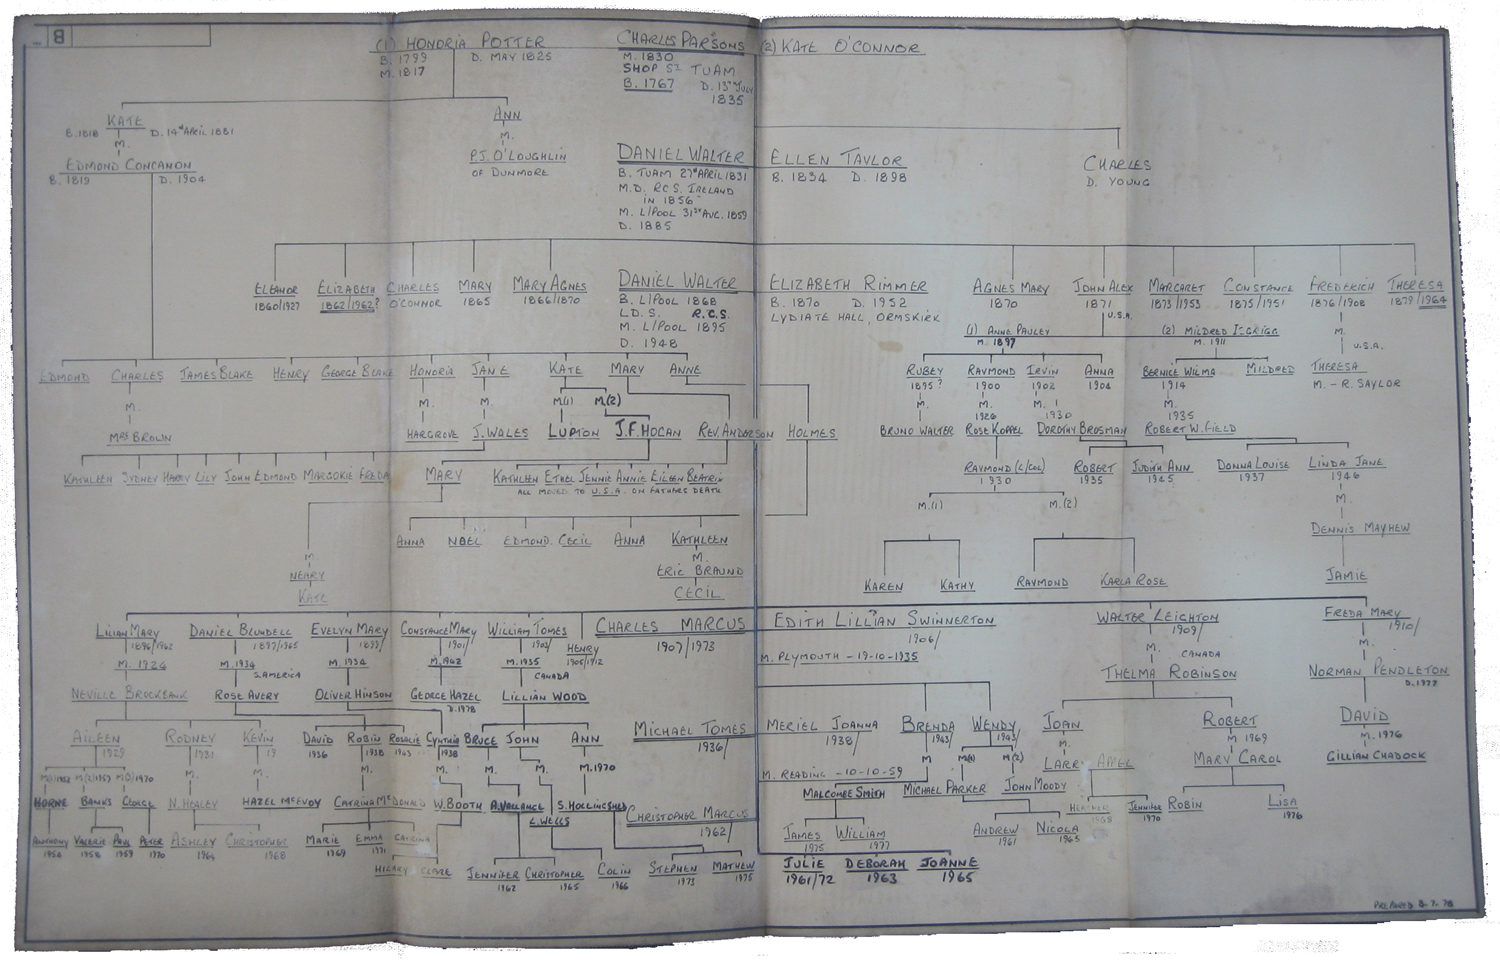 8
(1) HONORIA POTTER
B. 1799 D. MAY 1825
M. 1817
CHARLES PARSONS
M. 1830
SHOP ST TUAM
B. 1767 D. 13TH JULY
1835
(2) KATE O'CONNOR
KATE
B. 1818 D. 14TH APRIL 1881
M.
EDMOND CONCANON
B. 1819 D. 1904
ANN
M.
P.J. O'LOUGHLIN
OF DUNMORE
DANIEL WALTER
B. TUAM 27TH APRIL 1831
M.D. R.C.S. IRELAND
IN 1856
M. L/POOL 31ST AUG. 1859
D. 1885
ELLEN TAYLOR
B. 1834 D. 1898
CHARLES
D. YOUNG
ELEANOR
1860/1927
ELIZABETH
1862/1962?
CHARLES
O'CONNOR
MARY
1865
MARY AGNES
1866/1870
DANIEL WALTER
B. L/POOL 1868
L.D.S. R.C.S.
M. L/POOL 1895
D. 1948
ELIZABETH RIMMER
B. 1870 D. 1952
LYDIATE HALL, ORMSKIRK
AGNES MARY
1870
JOHN ALEX
1871
U.S.A.
MARGARET
1873/1953
CONSTANCE
1875/1951
FREDERICK
1876/1908
THERESA
1879/1964
(1) ANNE PAULEY
M. 1897
(2) MILDRED
M. 1911
M.
U.S.A.
THERESA
M. - R. SAYLOR
EDMOND CHARLES JAMES BLAKE HENRY GEORGE BLAKE HONORIA JANE KATE MARY ANNE
M.
MRS BROWN
M.
HARGROVE
M.
J. WALES
M.(1) M.(2)
LUPTON J.F. HOGAN REV. ANDERSON HOLMES
RUBEY
1895?
M.
BRUNO WALTER
RAYMOND
1900
M.
1926
ROSE KOPPEL
IRVIN
1902
M.
1930
DOROTHY BROSMAN
ANNA
1904
BERNICE WILMA
1914
M.
1935
ROBERT W. FIELD
MILDRED
KATHLEEN SYDNEY HARRY LILY JOHN EDMOND MARJORIE FREDA
MARY
KATHLEEN ETHEL JENNIE ANNIE EILEEN BEATRIX
ALL MOVED TO U.S.A. ON FATHERS DEATH
RAYMOND (L/COL)
1930
M.(1) M.(2)
ROBERT
1935
JUDITH ANN
1945
DONNA LOUISE
1937
LINDA JANE
1946
M.
DENNIS MAYHEW
JAMIE
ANNA NOËL EDMOND CECIL ANNA KATHLEEN
M.
ERIC BRAUND
CECIL
M.
NEARY
KATE
KAREN KATHY RAYMOND KARLA ROSE
LILIAN MARY
1896/1962
M. 1924
NEVILLE BROCKBANK
DANIEL BLUNDELL
1897/1965
M. 1934
S. AMERICA
ROSE AVERY
EVELYN MARY
1899/
M. 1934
OLIVER HINSON
CONSTANCE MARY
1901/
M. 1942
GEORGE HAZEL
D. 1978
WILLIAM TOMES
1903/
M. 1935
CANADA
LILLIAN WOOD
HENRY
1905/1912
CHARLES MARCUS
1907/1973
EDITH LILLIAN SWINNERTON
1906/
M. PLYMOUTH - 19-10-1935
WALTER LEIGHTON
1909/
M. CANADA
THELMA ROBINSON
FREDA MARY
1910/
M.
NORMAN PENDLETON
D. 1977
AILEEN
1929
RODNEY
1931
KEVIN
DAVID
1936
ROBIN
1938
ROSALIE
1943
CYNTHIA
1938
BRUCE JOHN ANN
MICHAEL TOMES
1936/
MERIEL JOANNA
1938/
BRENDA
1943/
WENDY
1943/
JOAN
M.
ROBERT
M. 1969
MARY CAROL
DAVID
M. 1976
GILLIAN CHADOCK
M. READING - 10-10-59
M(1)1952 M(2)1957 M(3)1970
HORNE BANKS
M.
N. HEALEY
HAZEL MCEVOY
M.
CATRINA MCDONALD
M.
W. BOOTH
M.
A. VALLANCE
M.
L. WELLS
M. 1970
S. HOLLINGSHED
M
MALCOMBE SMITH
M(1) M(2)
MICHAEL PARKER JOHN MOODY
1968
JENNIFER
1970
ROBIN LISA
1976
ANTHONY
1954
VALERIE
1958
PAUL
1959
PETER
1970
ASHLEY
1964
CHRISTOPHER
1968
MARIE
1969
EMMA
1971
CATRINA
HILARY CLARE
CHRISTOPHER MARCUS
1962/
JAMES
1975
WILLIAM
1977
ANDREW
1961
NICOLA
1965
JENNIFER
1962
CHRISTOPHER
1965
COLIN
1966
STEPHEN
1973
MATHEW
1975
JULIE
1961/72
DEBORAH
1963
JOANNE
1965
PREPARED 8-7-78